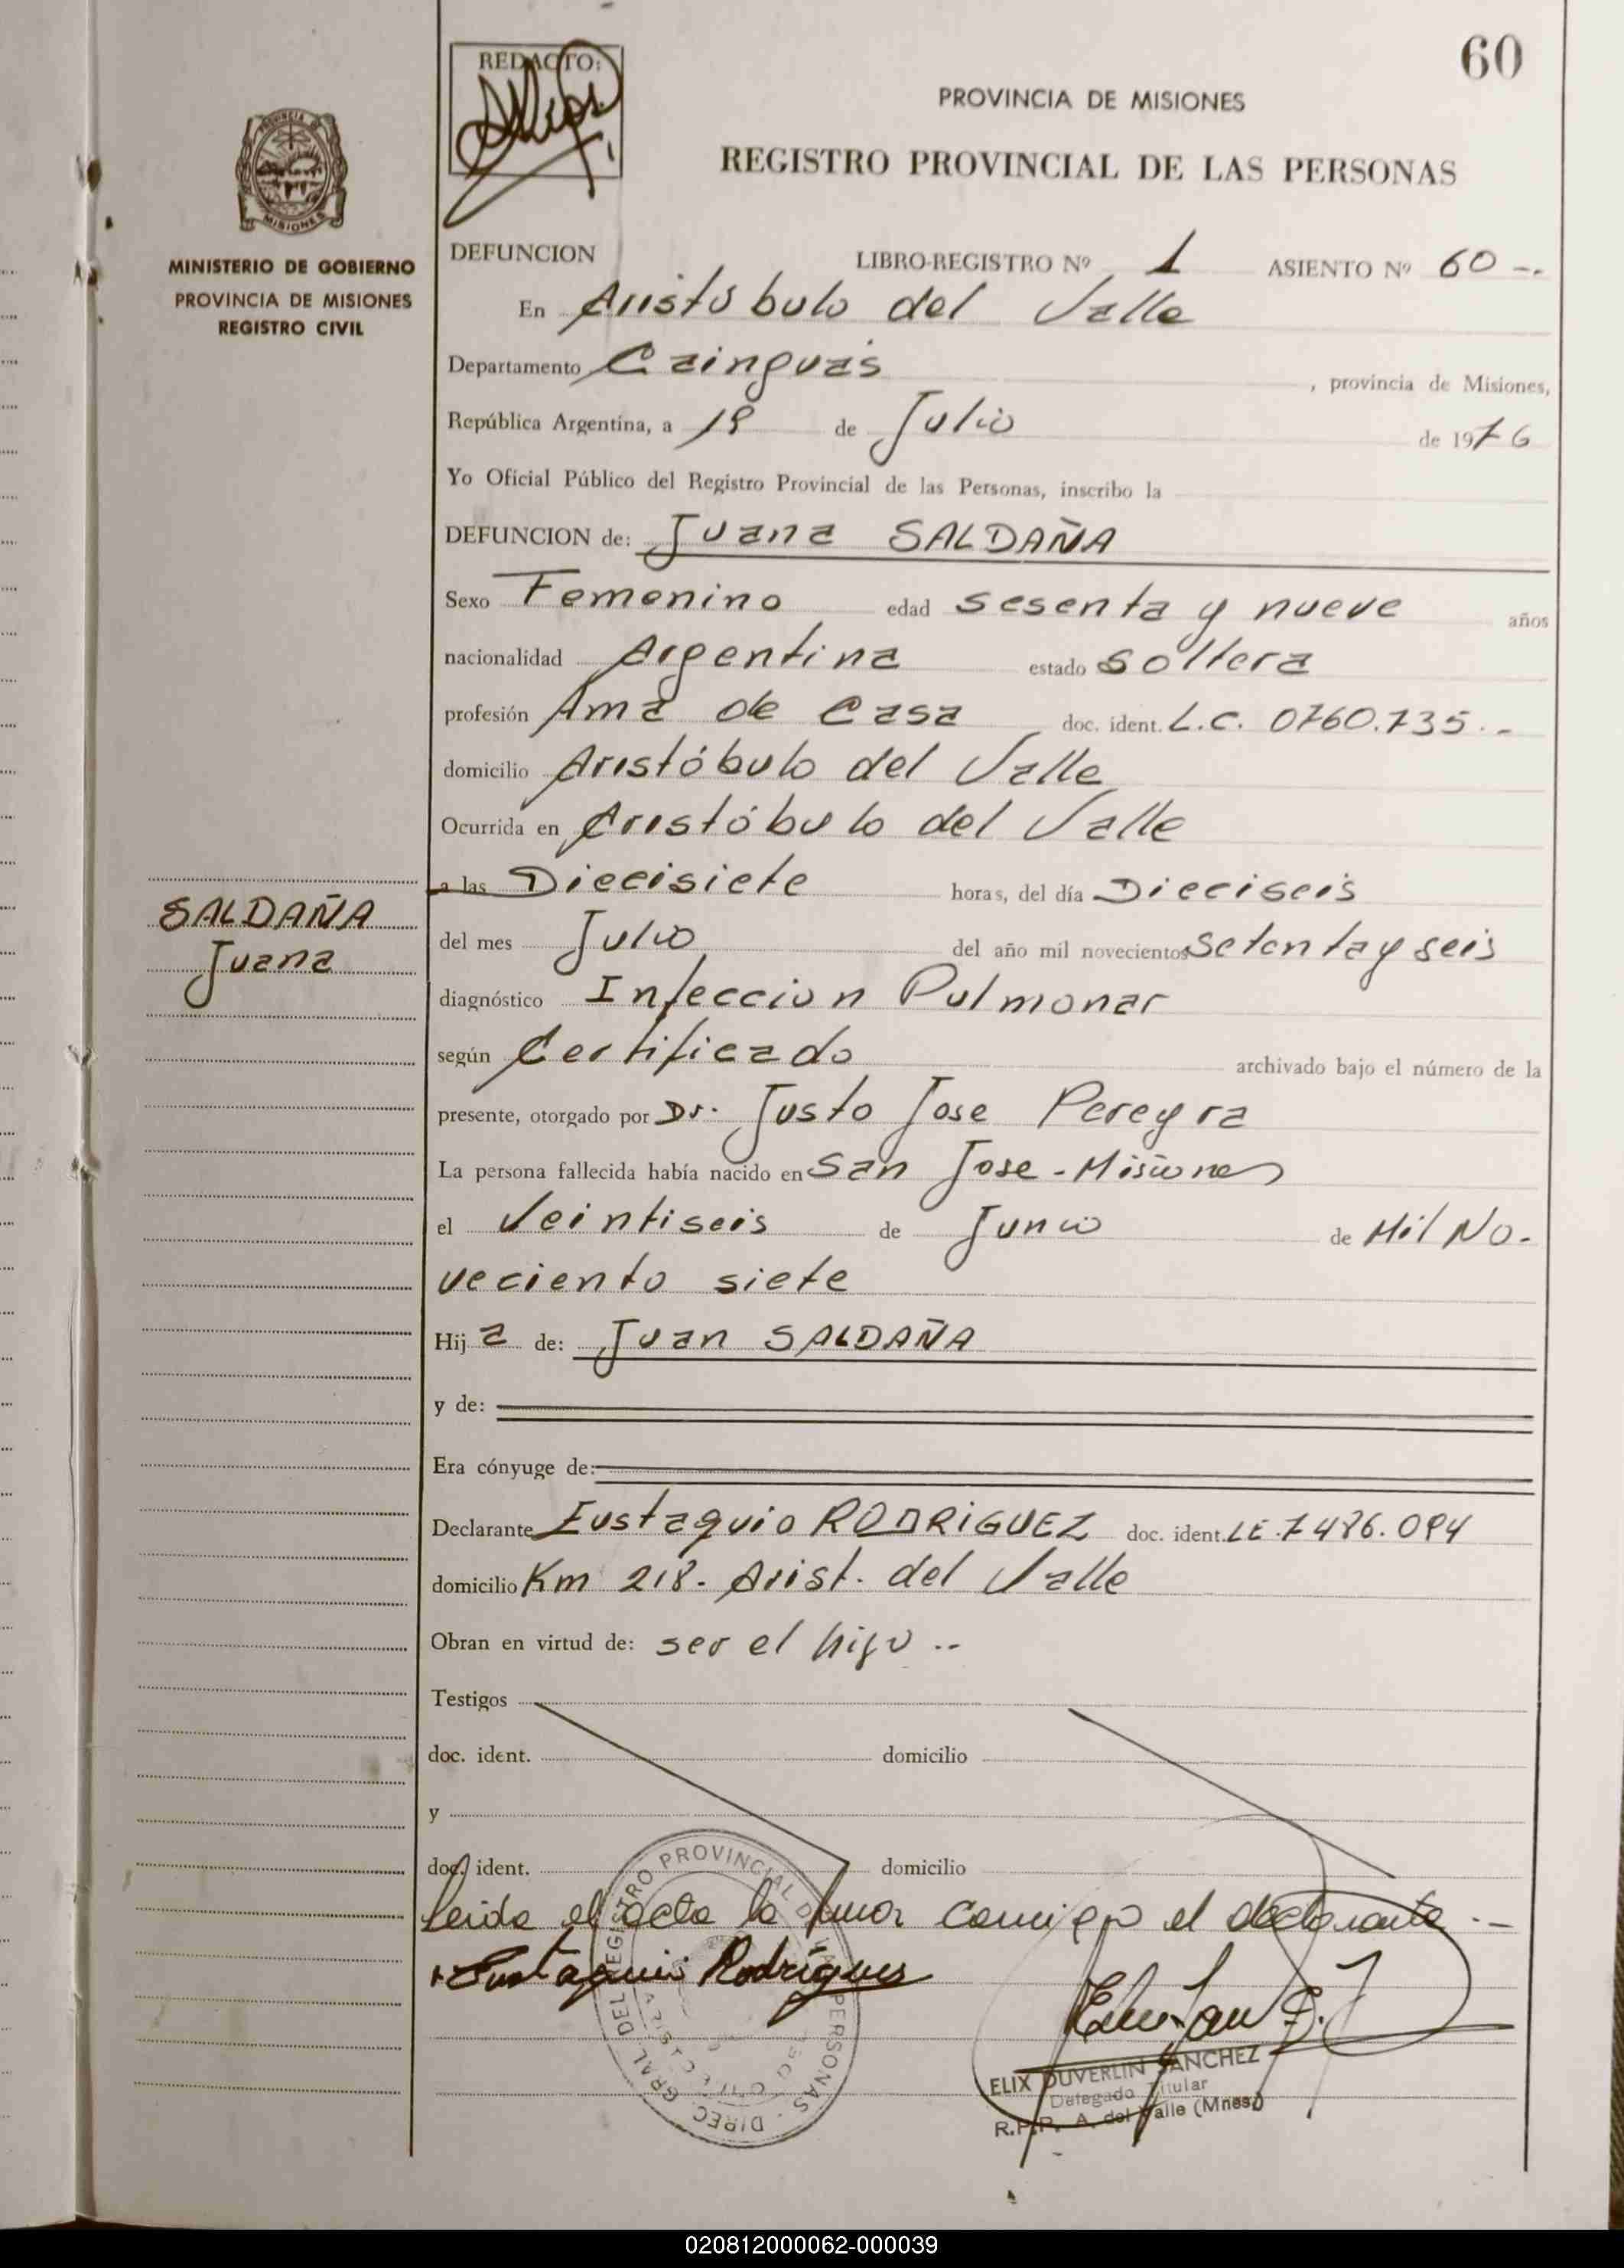 60
REDACTO:
PROVINCIA DE MISIONES
REGISTRO PROVINCIAL DE LAS PERSONAS
PROVINCIA DE
MISIONES
MINISTERIO DE GOBIERNO
PROVINCIA DE MISIONES
REGISTRO CIVIL
DEFUNCION LIBRO-REGISTRO Nº 1 ASIENTO Nº 60 -.
En Aristóbulo del Valle
Departamento Cainguás, provincia de Misiones,
República Argentina, a 19 de Julio de 1976
Yo Oficial Público del Registro Provincial de las Personas, inscribo la
DEFUNCION de: Juana SALDAÑA
Sexo Femenino edad sesenta y nueve años
nacionalidad Argentina estado soltera
profesión Ama de Casa doc. ident. L.C. 0760.735.-
domicilio Aristóbulo del Valle
Ocurrida en Aristóbulo del Valle
a las Diecisiete horas, del día Dieciseis
SALDAÑA
Juana
del mes Julio del año mil novecientos Setenta y seis
diagnóstico Infeccion Pulmonar
según Certificado archivado bajo el número de la
presente, otorgado por Dr. Justo Jose Pereyra
La persona fallecida había nacido en San Jose - Misiones
el Veintiseis de Junio de Mil No-
veciento siete
Hija de: Juan SALDAÑA
y de:
Era cónyuge de:
Declarante Eustaquio RODRIGUEZ doc. ident. LE. 7486.094
domicilio Km 218. Arist. del Valle
Obran en virtud de: ser el hijo ..
Testigos
doc. ident. domicilio
y
doc. ident. domicilio
Leida el acta la firma conmigo el declarante.-
Eustaquio Rodrigues
DIREC. GRAL. DEL REGISTRO PROVINCIAL DE LAS PERSONAS
ELIX DUVERLIN SANCHEZ
Delegado Titular
R.P.P. A. del Valle (Mnes)
020812000062-000039